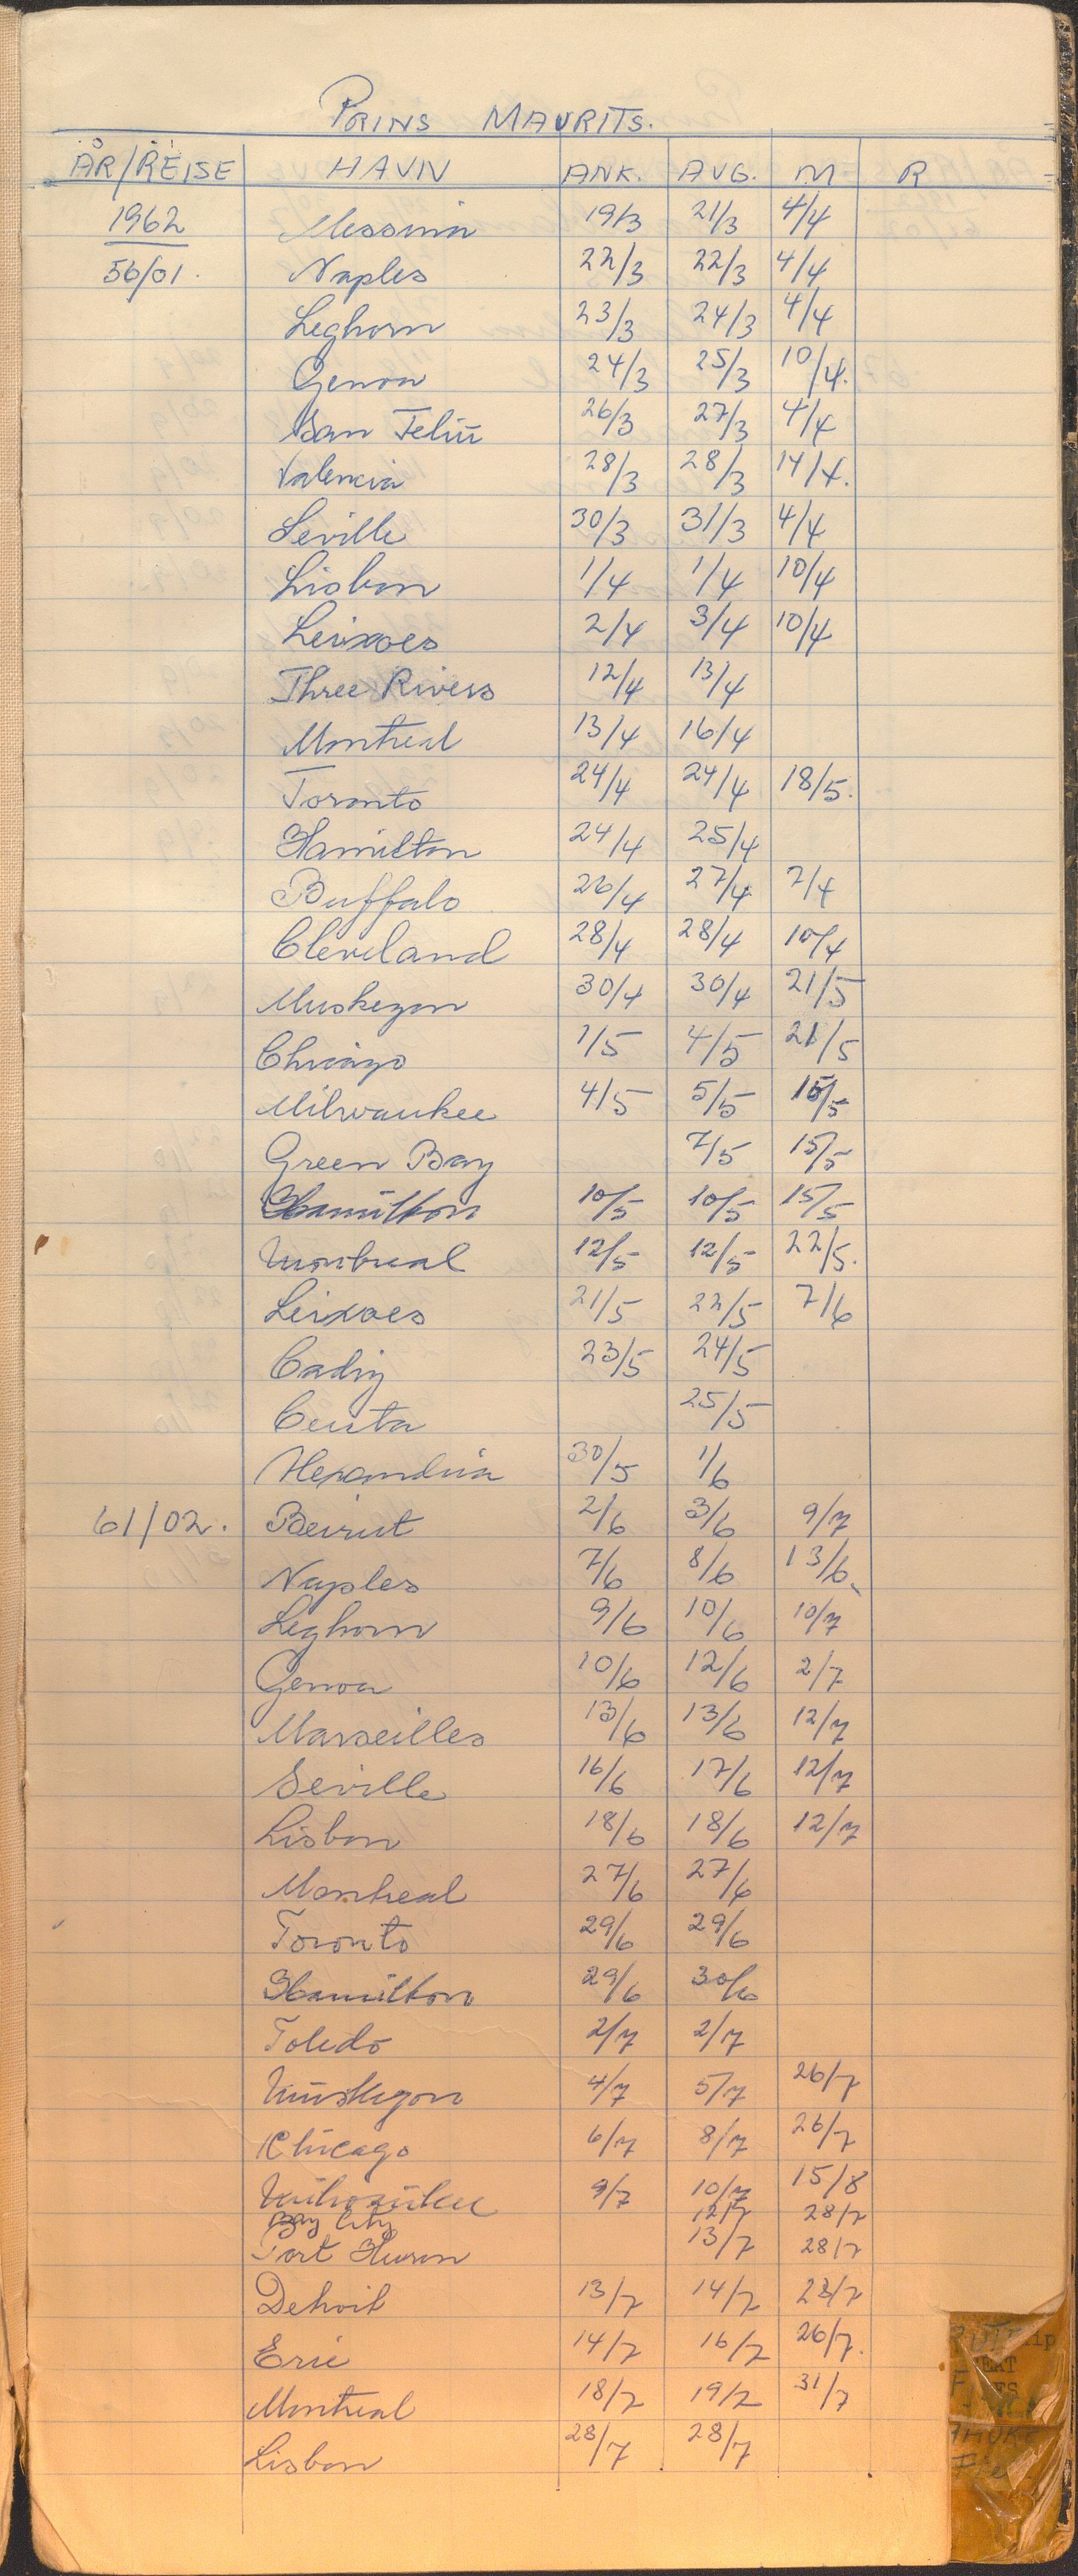 PRINS MAURITS.
ÅR/REISE HAVN ANK. AVG. M R
1962 Messina 19/3 21/3 4/4
56/01. Naples 22/3 22/3 4/4
Leghorn 23/3 24/3 4/4
Genoa 24/3 25/3 10/4.
San Feliu 26/3 27/3 4/4
Valencia 28/3 28/3 14/4.
Seville 30/3 31/3 4/4
Lisbon 1/4 1/4 10/4
Leixoes 2/4 3/4 10/4
Three Rivers 12/4 13/4
Montreal 13/4 16/4
Toronto 24/4 24/4 18/5.
Hamilton 24/4 25/4
Buffalo 26/4 27/4 7/4
Cleveland 28/4 28/4 10/4
Muskegon 30/4 30/4 21/5
Chicago 1/5 4/5 21/5
Milwaukee 4/5 5/5 15/5
Green Bay 7/5 15/5
Hamilton 10/5 10/5 15/5
Montreal 12/5 12/5 22/5.
Leixoes 21/5 22/5 7/6
Cadiz 23/5 24/5
Ceuta 25/5
Alexandria 30/5 1/6
61/02. Beirut 2/6 3/6 9/7
Naples 7/6 8/6 13/6
Leghorn 9/6 10/6 10/7
Genoa 10/6 12/6 2/7
Marseilles 13/6 13/6 12/7
Seville 16/6 17/6 12/7
Lisbon 18/6 18/6 12/7
Montreal 27/6 27/6
Toronto 29/6 29/6
Hamilton 29/6 30/6
Toledo 2/7 2/7
Muskegon 4/7 5/7 26/7
Chicago 6/7 8/7 26/7
Milwaukee 9/7 10/7 15/8
Bay City 12/7 28/7
Port Huron 13/7 28/7
Detroit 13/7 14/7 28/7
Erie 14/7 16/7 26/7.
Montreal 18/7 19/7 31/7
Lisbon 28/7 28/7